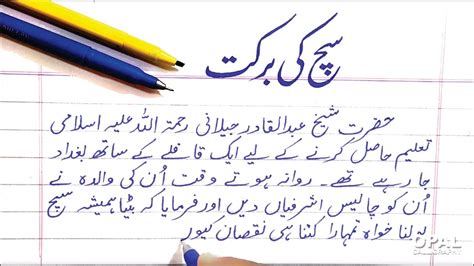 سچ کی برکت
حضرت شیخ عبدالقادر جیلانی رحمۃ اللہ علیہ اسلامی
تعلیم حاصل کرنے کے لیے ایک قافلے کے ساتھ بغداد
جا رہے تھے۔ روانہ ہوتے وقت اُن کی والدہ نے
اُن کو چالیس اشرفیاں دیں اور فرمایا کہ بیٹا ہمیشہ سچ
بولنا خواہ تمہارا کتنا ہی نقصان کیوں
OPAL
CALLIGRAPHY